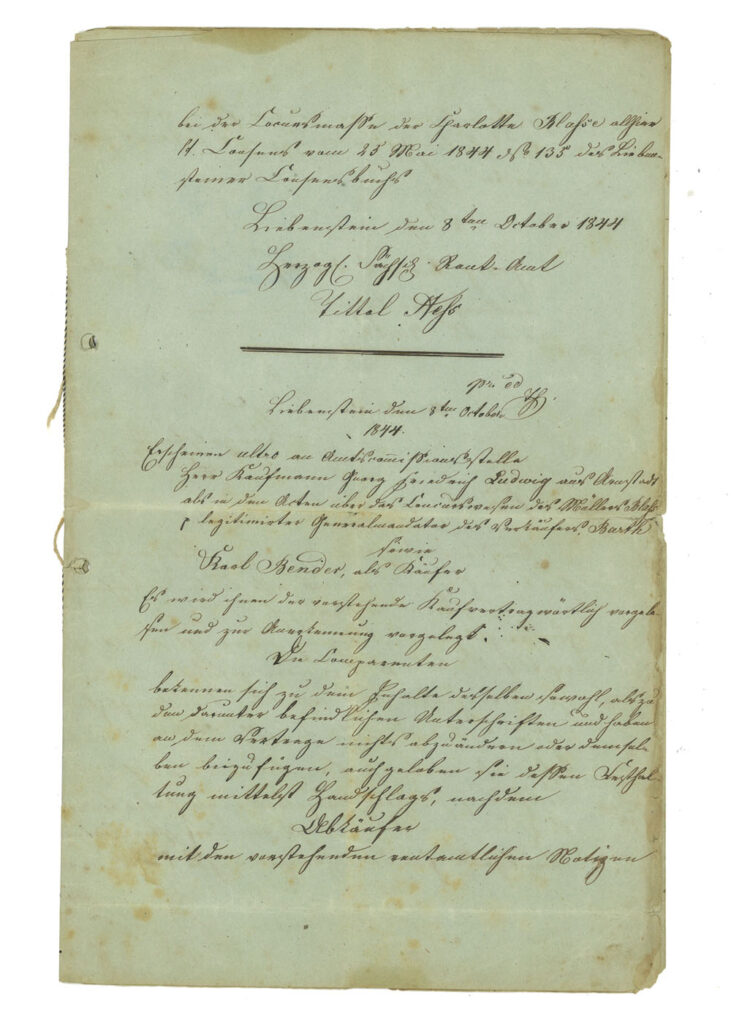 bei der Concursmasse der Charlotte Klosse allhier
lt. Consens vom 25 Mai 1844 No 135 des Lieben-
steiner Consensbuchs
Liebenstein den 8ten October 1844
Herzogl. Sächs. Rent-Amt
Tittel Heß
Liebenstein den 8ten October
1844.
Erscheinen ultro an Amtscommissionsstelle
Herr Kaufmann Georg Friedrich Ludwig aus Arnstadt
als in den Acten über das Concurswesen des Müllers
legitimirter Generalmandatar des Verkäufers, Barth
sowie
Karl Bender, als Käufer
Es wird ihnen der vorstehende Kaufvertrag wörtlich vorgele-
sen und zur Anerkennung vorgelegt.
Die Comparenten
bekennen sich zu dem Inhalte desselben sowohl, als zu
den darunter befindlichen Unterschriften und haben
an dem Vertrage nichts abzuändern oder demsel-
ben beizufügen, auch geloben sie dessen Festhal-
tung mittelst Handschlags, nachdem
Abkäufer
mit den vorstehenden rentamtlichen Notizen